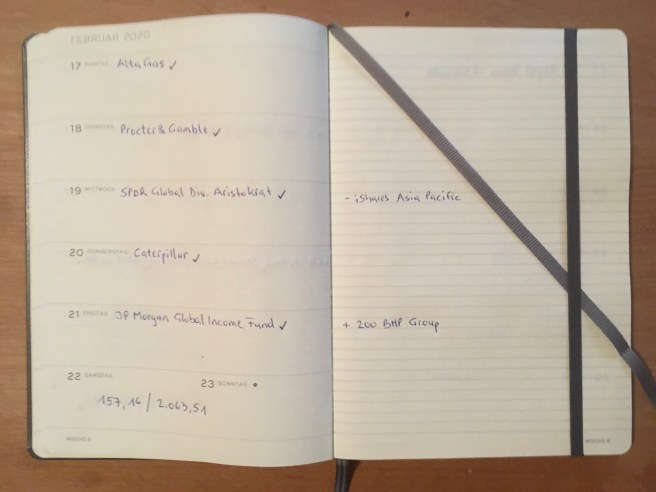 17 MONTAG AltaGas ✓
18 DIENSTAG Procter & Gamble ✓
19 MITTWOCH SPDR Global Div. Aristokrat ✓
- iShares Asia Pacific
20 DONNERSTAG Caterpillar ✓
21 FREITAG JP Morgan Global Income Fund ✓
+ 200 BHP Group
22 SAMSTAG
23 SONNTAG
157,16 / 2.063,51